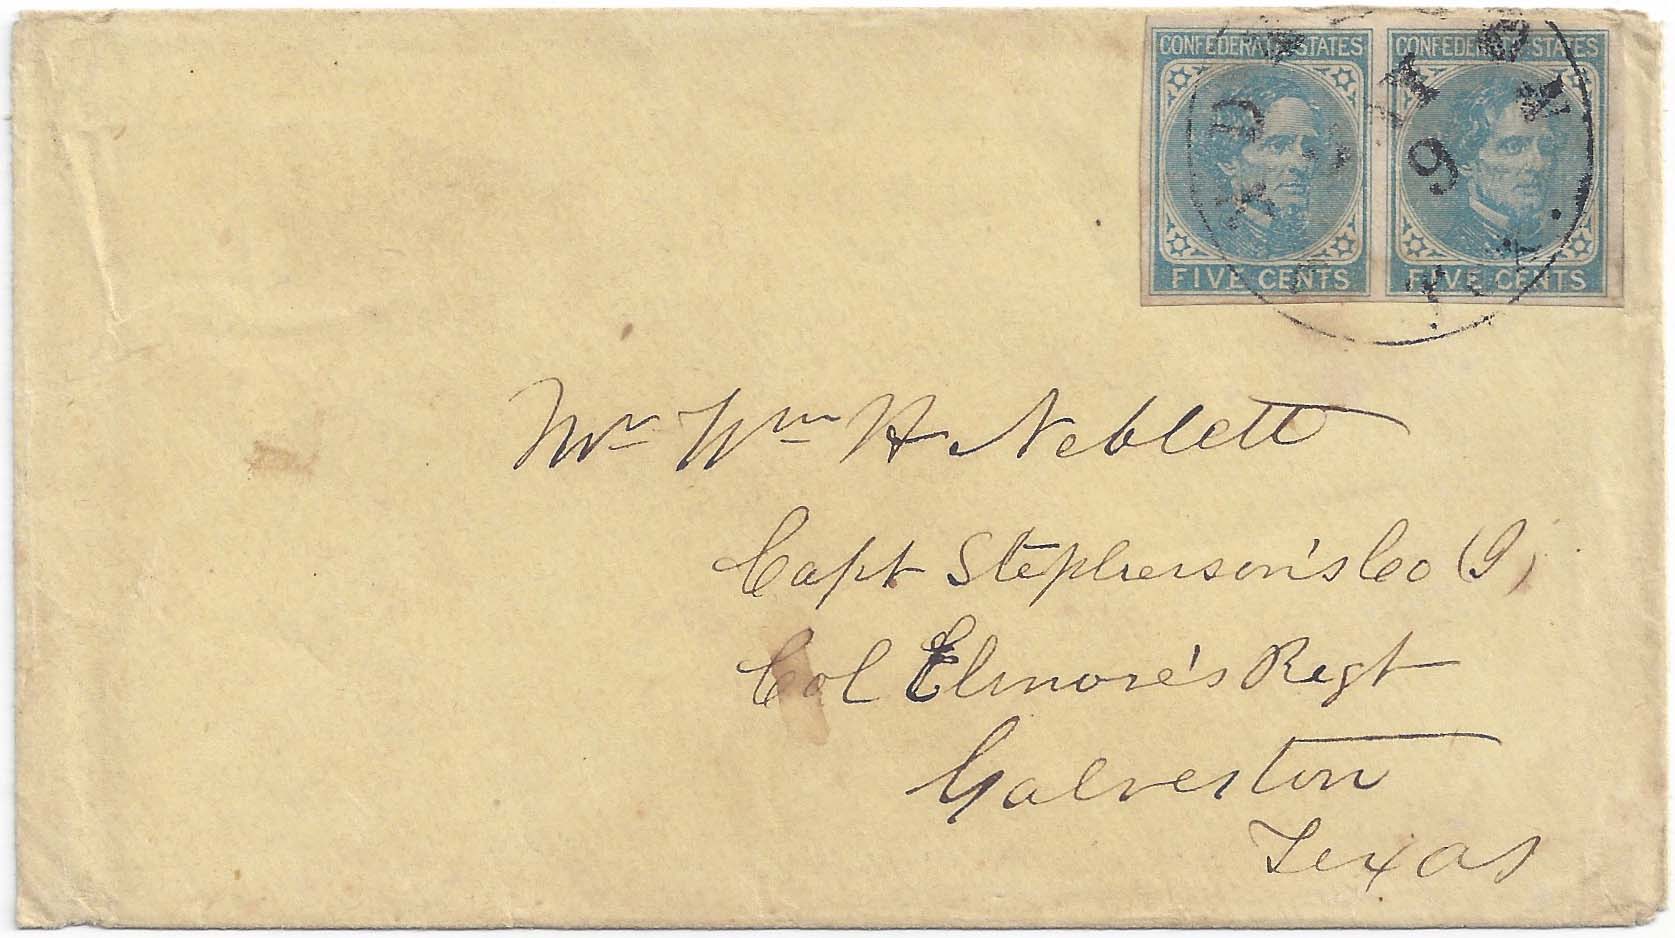 CONFEDERATE STATES CONFEDERATE STATES
FIVE CENTS FIVE CENTS
9
Mr Wm H Neblett
Capt Stepherson's Co (I)
Col Elmore's Regt
Galveston
Texas